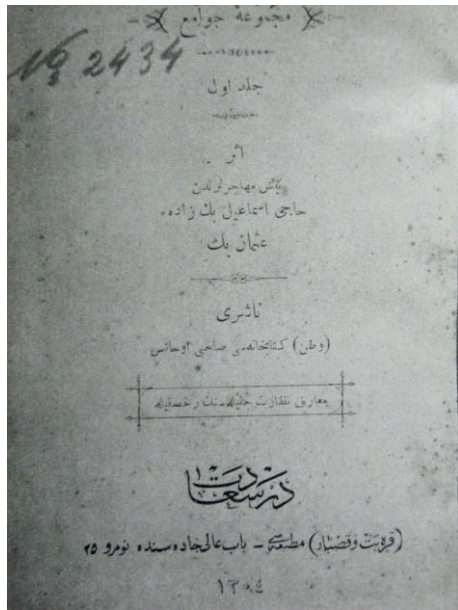 مجموعهٔ جوامع
№ 2434
جلد اول
اثر
مهاجرلرندن
حاجی اسماعیل بك زاده
عثمان بك
ناشری
(وطن) كتابخانه‌سی صاحبی اوحانس
معارف نظارت جلیله‌سنك رخصتیله
درسعادت
(قره‌بت وقصبار) مطبعه‌سی – باب عالی جاده‌سنده نومرو ٢٥
١٣٠٤